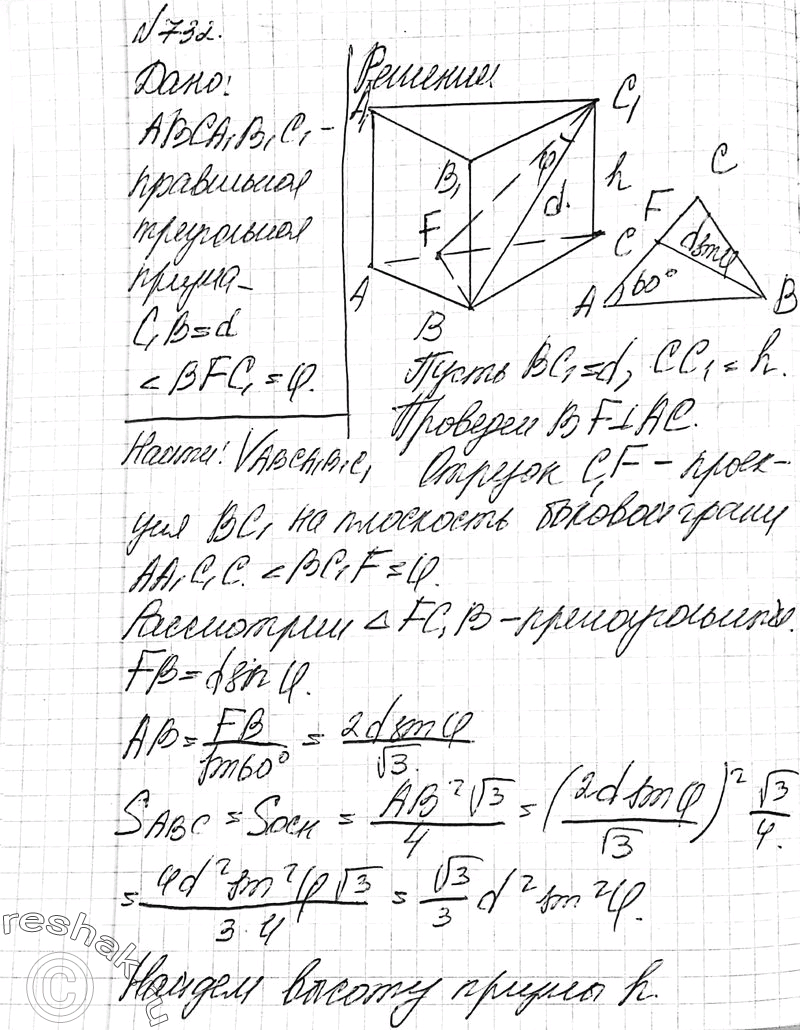 №732.
Дано:
ABCA₁B₁C₁ –
правильная
треугольная
призма_
C₁B = d
∠BFC₁ = φ.
Найти: V ABCA₁B₁C₁
Решение
A₁
C₁
B₁
φ
h
d.
F
C
A
B
C
F
dsinφ
60°
A
B
Пусть BC₁ = d, CC₁ = h.
Проведем BF⊥AC.
Отрезок C₁F – проек-
ция BC₁ на плоскость боковой грани
AA₁C₁C. ∠BC₁F = φ.
Рассмотрим △FC₁B – прямоугольный.
FB = dsin φ.
AB = FB/sin60° = 2dsinφ/√3
S ABC = Sосн = AB²√3/4 = (2dsinφ/√3)² √3/4.
= 4d²sin²φ√3/3·4 = √3/3 d²sin²φ.
Найдем высоту призмы h.
reshak.ru
©